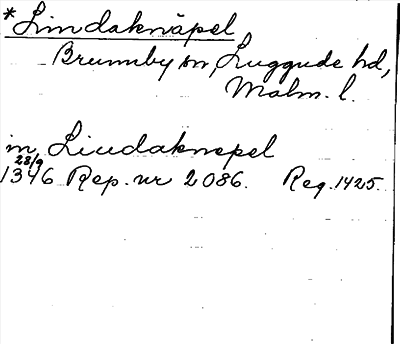 *Lindaknäpel
Brunnby sn, Luggude hd,
Malm. l.
in Lindaknepel
28/9
1346 Rep. nr 2086. Reg. 1425.